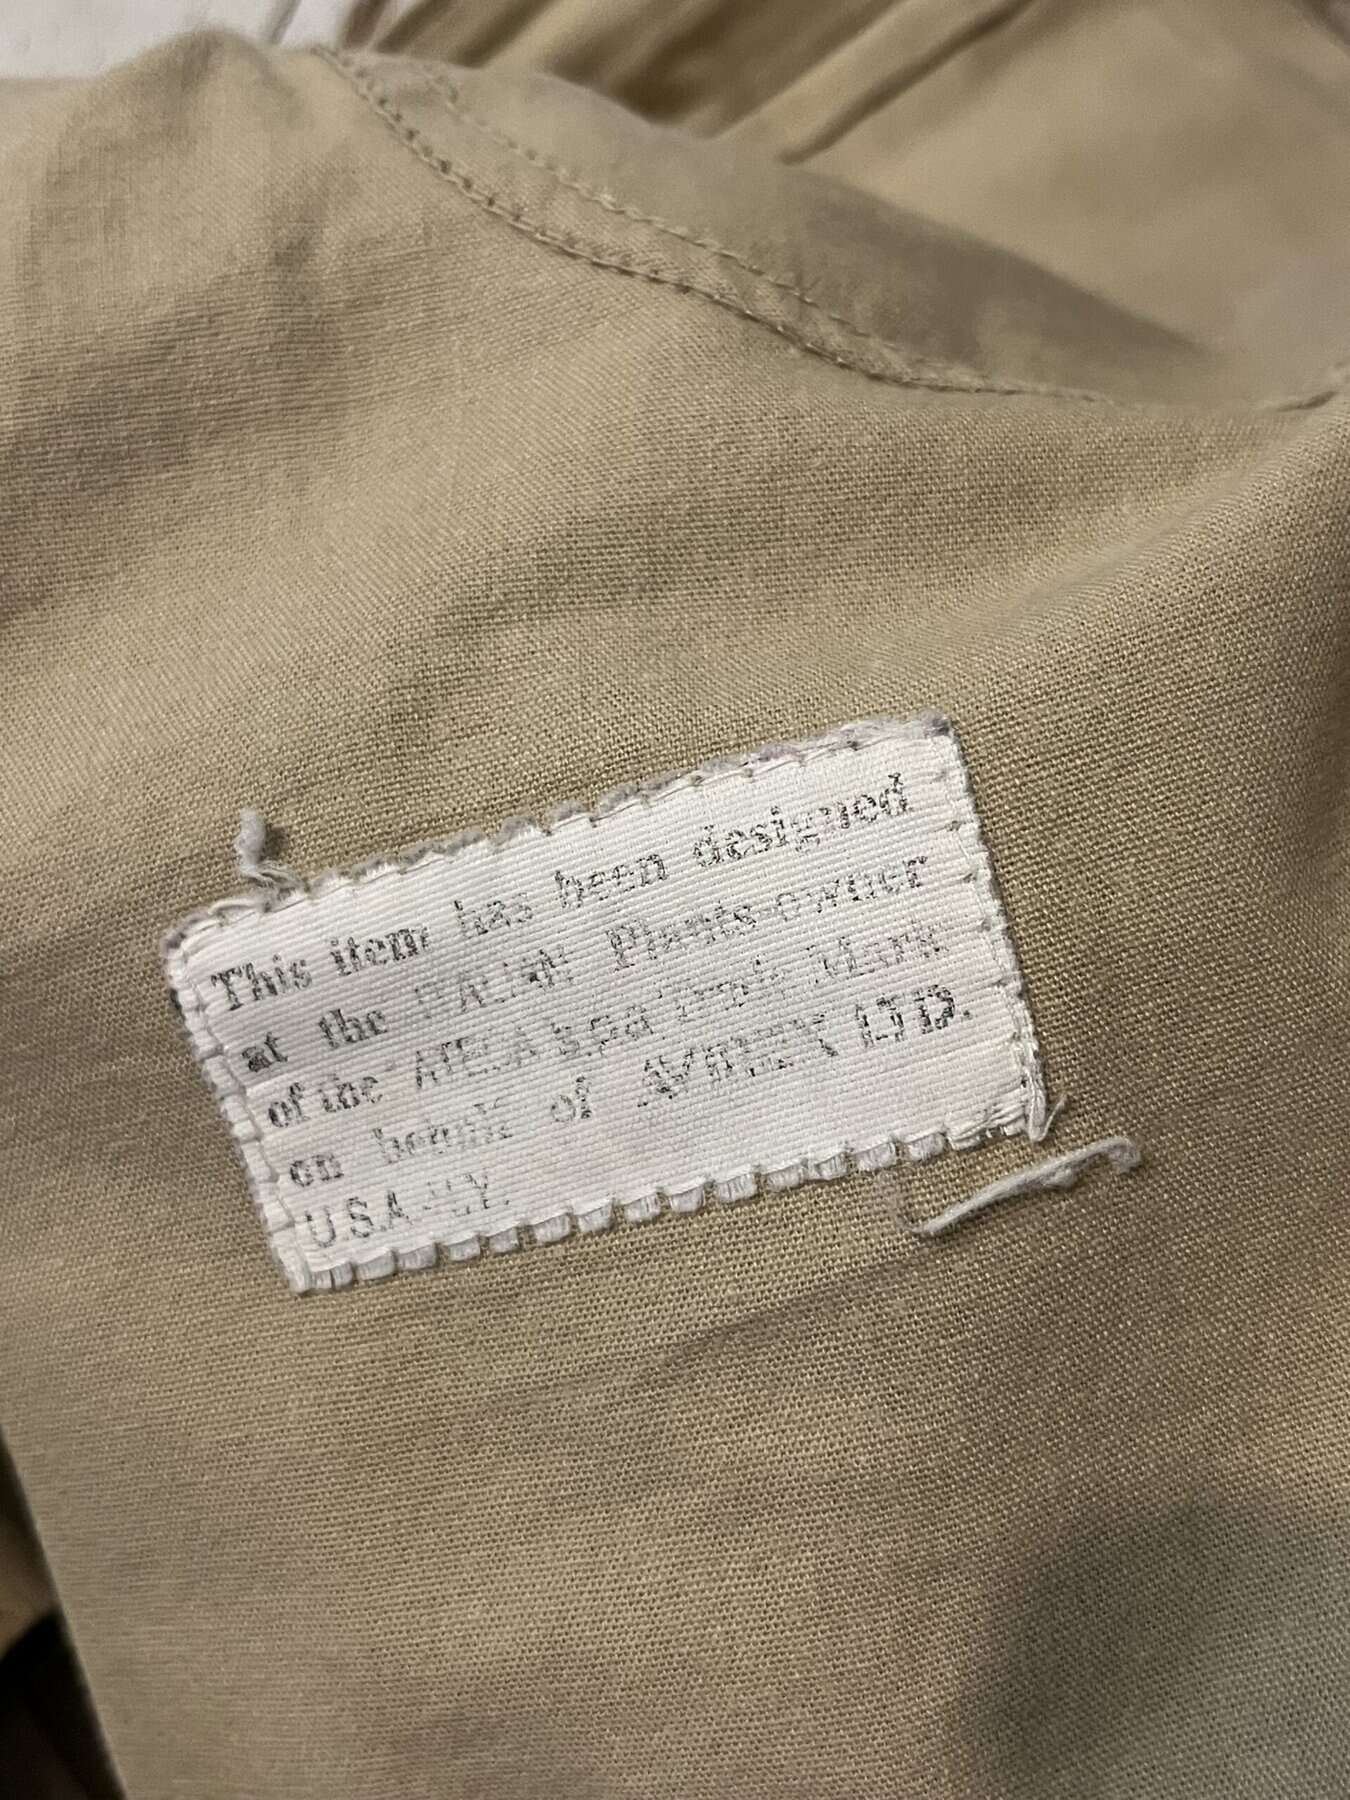 This item has been designed
at the ITALIAN Plants-owner
of the spa Trade Mark
on behalf of AVIREX LTD.
U.S.A.-N.Y.